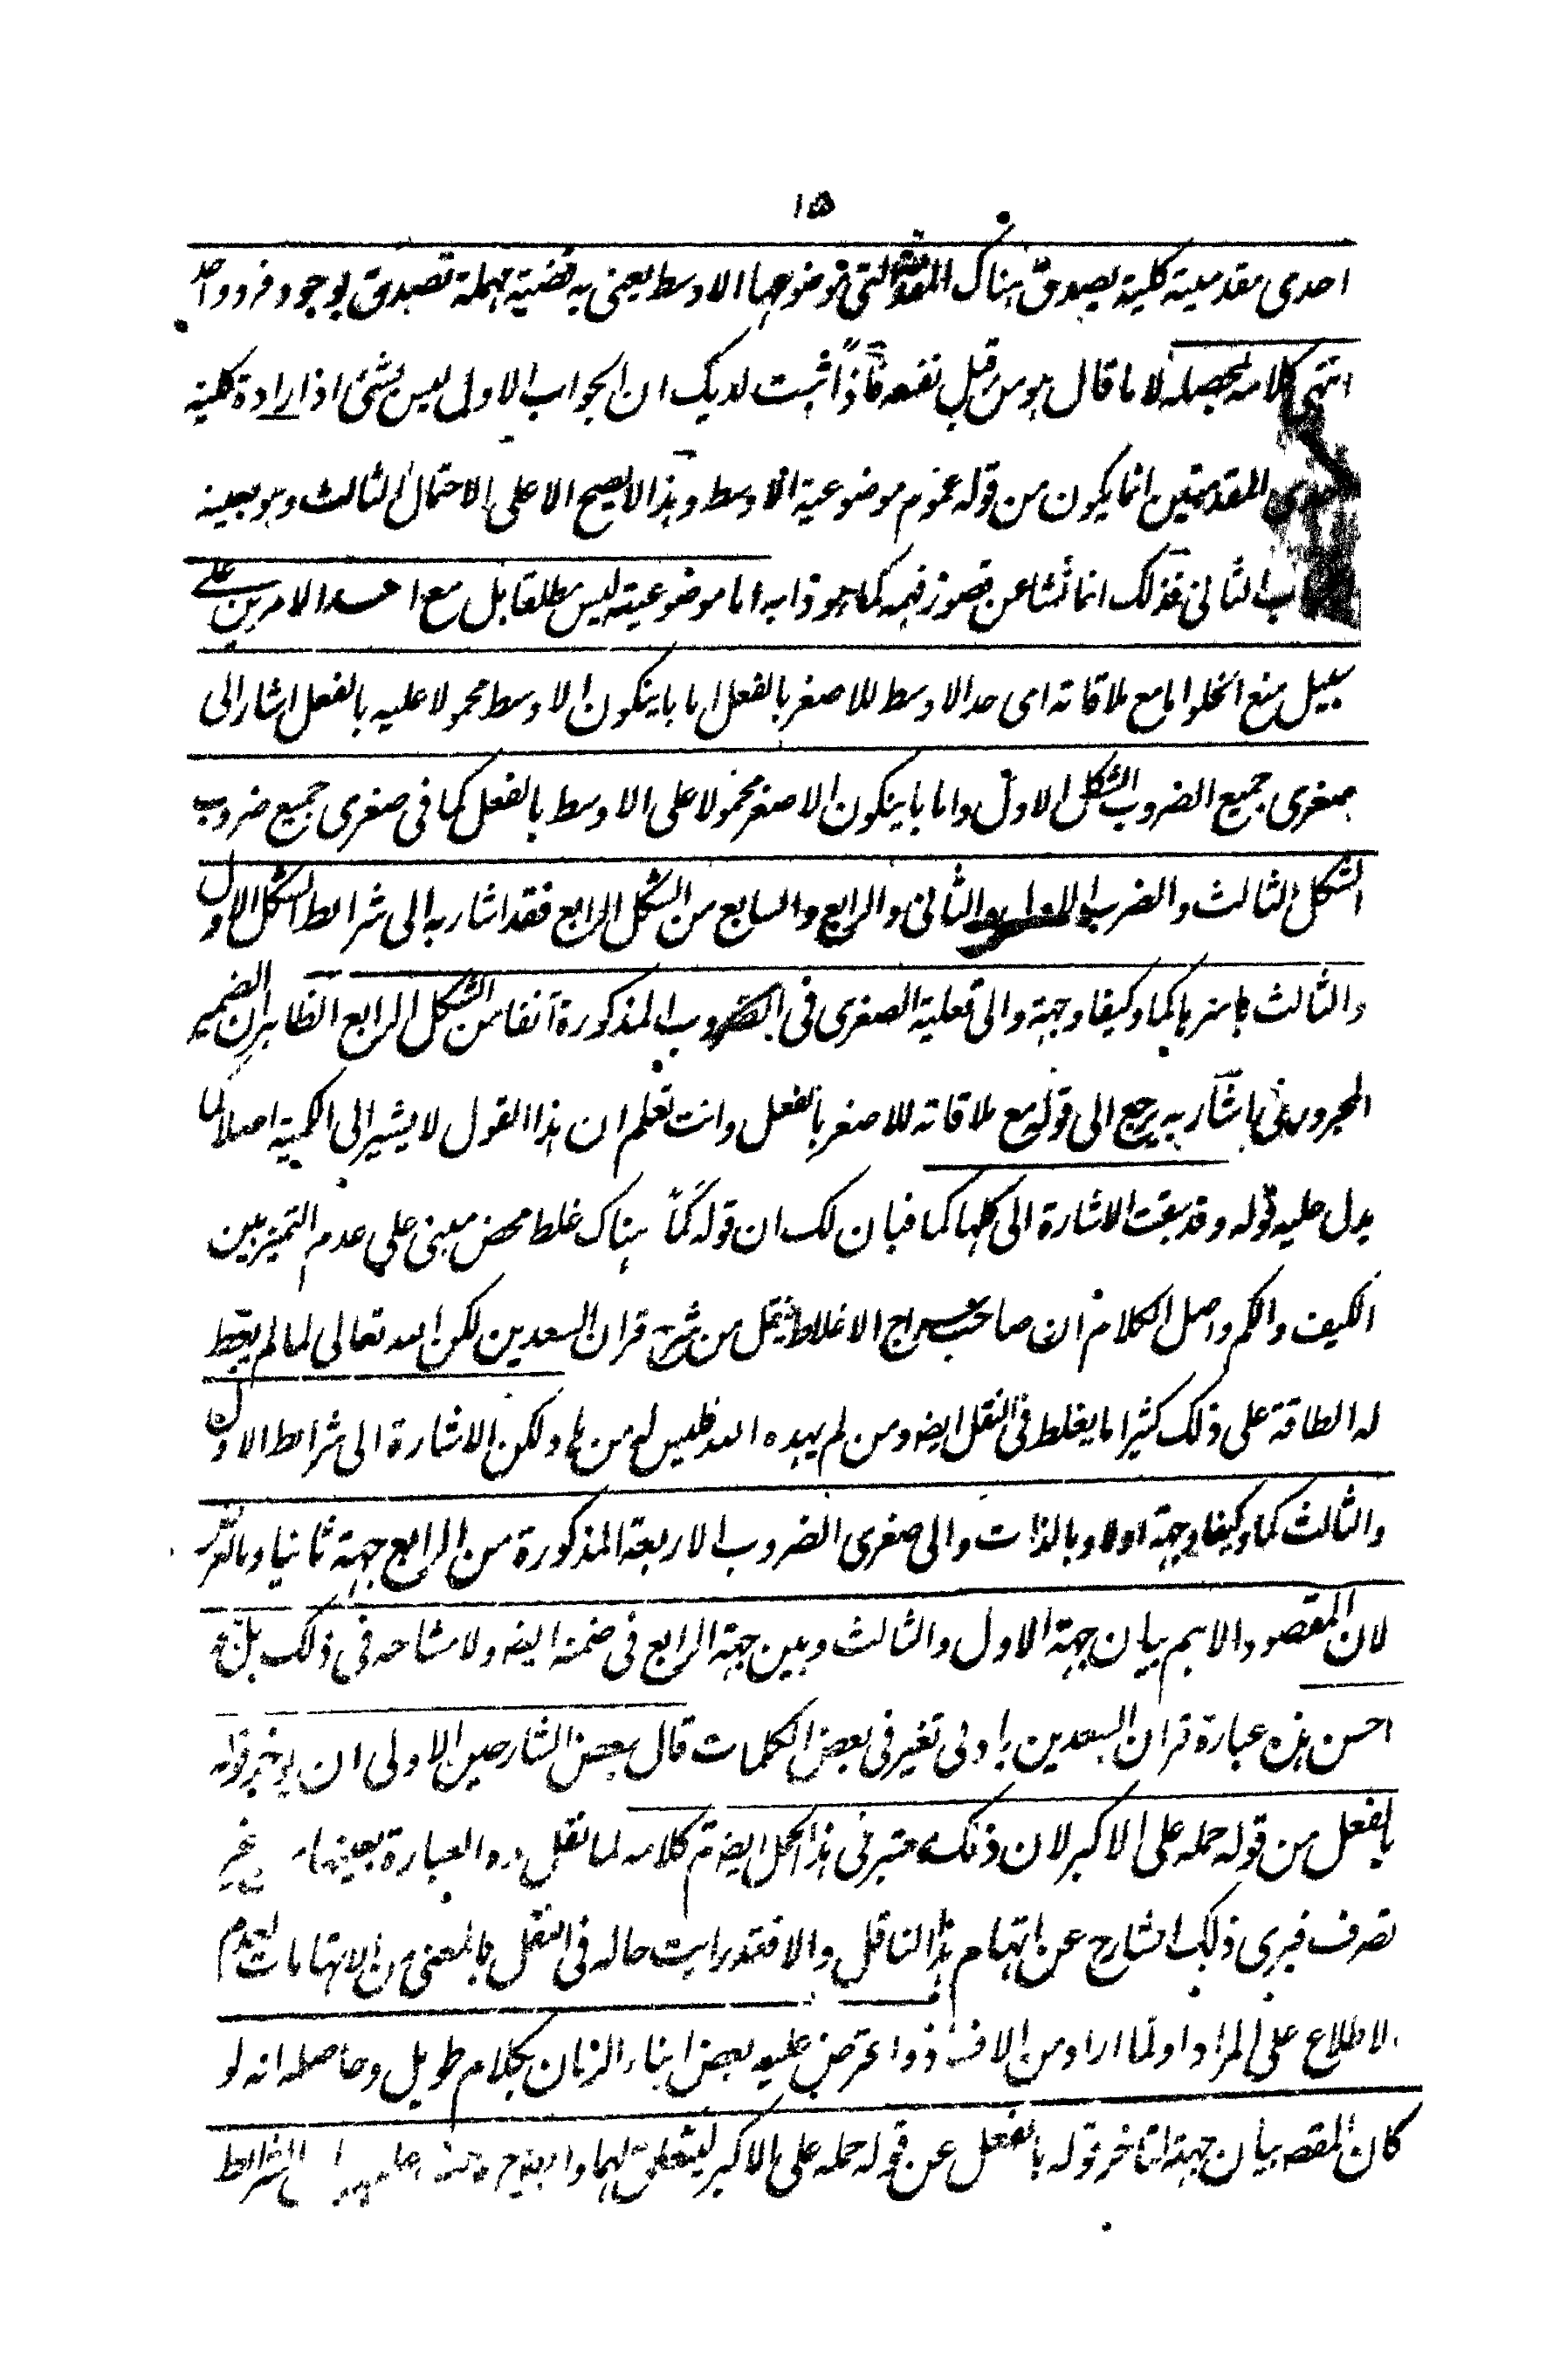 ۱۵
احدى مقدمتيه كلية يصدق هناك المقدمة التى موضوعها الاوسط يعنى به قضية مهملة تصدق بوجود فرد واحد
انتهى كلامه بمحصله لا ما قال هو من قبل نفسه فاذا ثبت لديك ان الجواب الاول ليس بشئ اذ ارادة كلية
المقدمتين انما يكون من قوله عموم موضوعية الاوسط وهذا لا يصح الا على الاحتمال الثالث وهو بعينه
الثانى فذلك انما نشا عن قصور فهمه كما هو دابه اما موضوعيته ليس مطلقا بل مع احد الامرين على
سبيل منع الخلو اما مع ملاقاته اى حد الاوسط للاصغر بالفعل اما بان يكون الاوسط محمولا عليه بالفعل اشار الى
صغرى جميع الضروب الشكل الاول واما بان يكون الاصغر محمولا على الاوسط بالفعل كما فى صغرى جميع ضروب
الشكل الثالث والضرب الاول والثانى والرابع والسابع من الشكل الرابع فقد اشار به الى شرائط الشكل الاول
والثالث باسرها كما وكيفا وجهة والى فعلية الصغرى فى الضروب المذكورة آنفا من الشكل الرابع الظاهر ان الضمير
المجرور فى اشار به يرجع الى قوله مع ملاقاته للاصغر بالفعل وانت تعلم ان هذا القول لا يشير الى الكمية اصلا كما
يدل عليه قوله وقد سبقت الاشارة الى كلها كما فبان لك ان قوله كماً هناك غلط محض مبنى على عدم التميز بين
الكيف والكم واصل الكلام ان صاحب معراج الاغلاط ينقل من شرح قران السعدين لكن الله تعالى لما لم يعط
له الطاقة على ذلك كثيرا ما يغلط فى النقل ايضا ومن لم يهده الله فليس له من هاد ولكن الاشارة الى شرائط الاول
والثالث كما وكيفا وجهة اولا وبالذات والى صغرى الضروب الاربعة المذكورة من الرابع جهة ثانيا وبالعرض
لان المقصود الاهم بيان جهة الاول والثالث وبين جهة الرابع فى ضمنه ايضا ولا مشاحه فى ذلك بل هو
احسن هذه عبارة قران السعدين بادنى تغير فى بعض الكلمات قال بعض الشارحين الاولى ان يوخر قوله
بالفعل من قوله حمله على الاكبر لان ذلك معتبر فى هذا الحمل ايضا تم كلامه لما نقل هذه العبارة بعينها من غير
تصرف فبرى ذلك الشارح عن اتهام هذا الناقل والا فقد رايت حاله فى النقل بالمعنى من الاتهامات لعدم
الاطلاع على المراد او لما اراد من الافساد واعترض عليه بعض ابناء الزمان بكلام طويل وحاصله انه لو
كان المقصد بيان جهة لتاخر قوله بالفعل عن قوله حمله على الاكبر ليتعلق بهما وايضا الشرائط